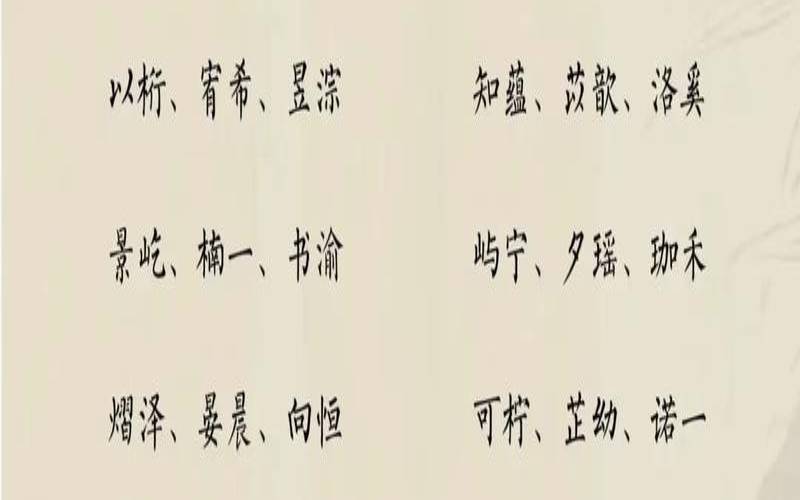 以桁、宥希、昱淙 知蕴、苡歆、洛奚
景屹、楠一、书渝 屿宁、夕瑶、珈禾
熠泽、晏晨、向恒 可柠、芷幼、诺一